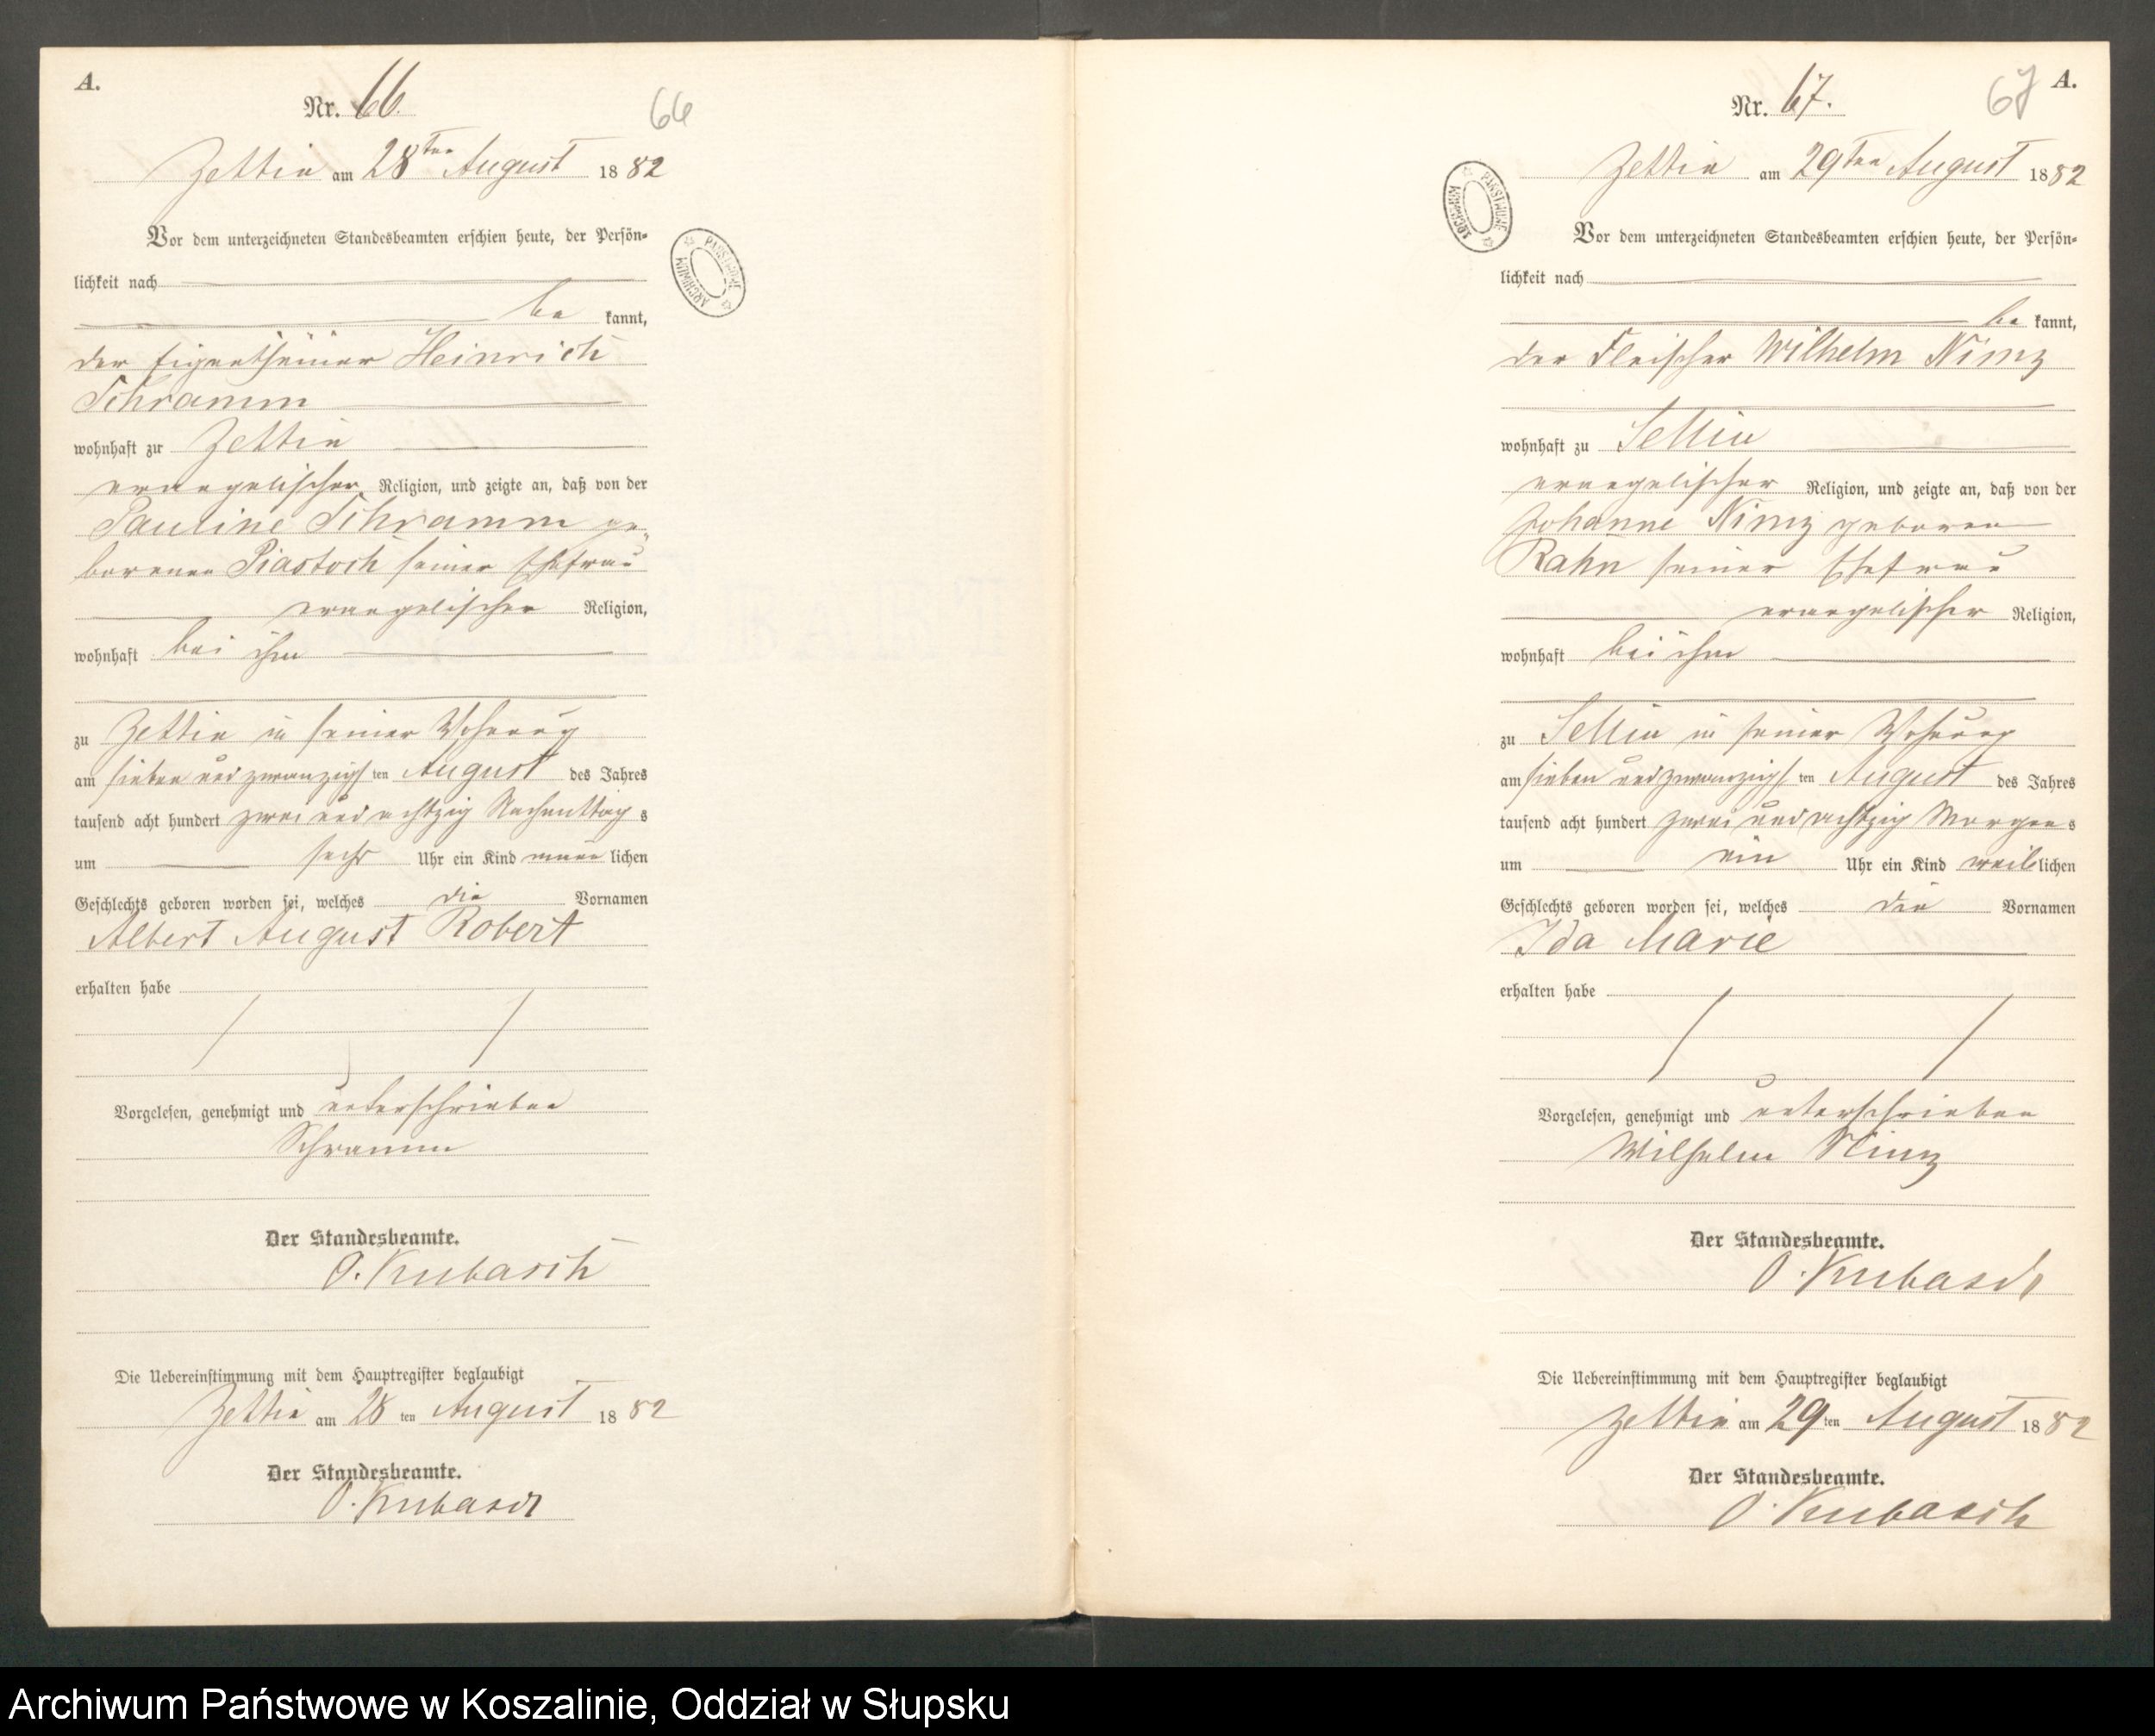 A.
Nr. 66.
66
Zettin am 28ten August 1882
Vor dem unterzeichneten Standesbeamten erschien heute, der Persön-
lichkeit nach
be kannt,
der Eigenthümer Heinrich
Schramm
wohnhaft zu Zettin
evangelischer Religion, und zeigte an, daß von der
Pauline Schramm ge-
borenen Piastoch seiner Ehefrau
evangelischer Religion,
wohnhaft bei ihm
zu Zettin in seiner Wohnung
am sieben und zwanzigsten August des Jahres
tausend acht hundert zwei und achtzig Nachmittags
um sechs Uhr ein Kind männlichen
Geschlechts geboren worden sei, welches die Vornamen
Albert August Robert
erhalten habe
Vorgelesen, genehmigt und unterschrieben
Schramm
Der Standesbeamte.
O. Kubasch
Die Uebereinstimmung mit dem Hauptregister beglaubigt
Zettin am 28 ten August 1882
Der Standesbeamte.
O. Kubasch
ARCHIWUM PAŃSTWOWE
A.
Nr. 67.
67
Zettin am 29ten August 1882
Vor dem unterzeichneten Standesbeamten erschien heute, der Persön-
lichkeit nach
be kannt,
der Fleischer Wilhelm Nimz
wohnhaft zu Sellin
evangelischer Religion, und zeigte an, daß von der
Johanne Nimz geboren
Rahn seiner Ehefrau
evangelischer Religion,
wohnhaft bei ihm
zu Sellin in seiner Wohnung
am sieben und zwanzigsten August des Jahres
tausend acht hundert zwei und achtzig Morgens
um ein Uhr ein Kind weiblichen
Geschlechts geboren worden sei, welches die Vornamen
Ida Marie
erhalten habe
Vorgelesen, genehmigt und unterschrieben
Wilhelm Nimz
Der Standesbeamte.
O. Kubasch
Die Uebereinstimmung mit dem Hauptregister beglaubigt
Zettin am 29 ten August 1882
Der Standesbeamte.
O. Kubasch
ARCHIWUM PAŃSTWOWE
Archiwum Państwowe w Koszalinie, Oddział w Słupsku